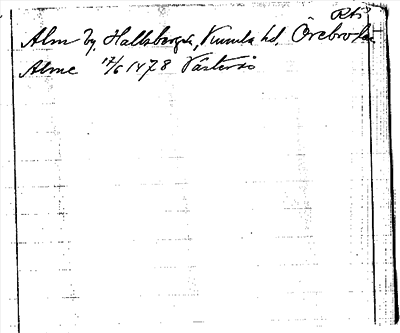 Rbs
Alm by, Hallsbergs, Kumla hd, Örebro län
Alme 17/6 1478 Västerås